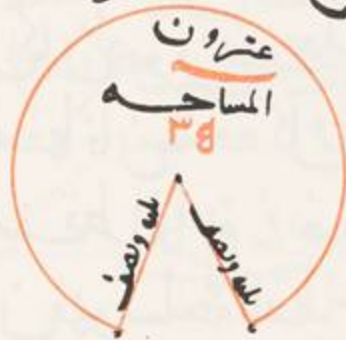 عشرون
المساحه
٣٥
ثلثه ونصف
ثلثه ونصف